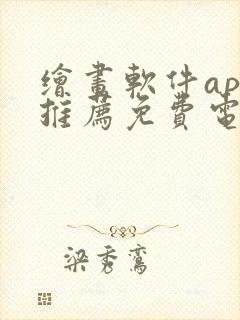 繪畫軟件ap
推薦免費電
梁秀鸞